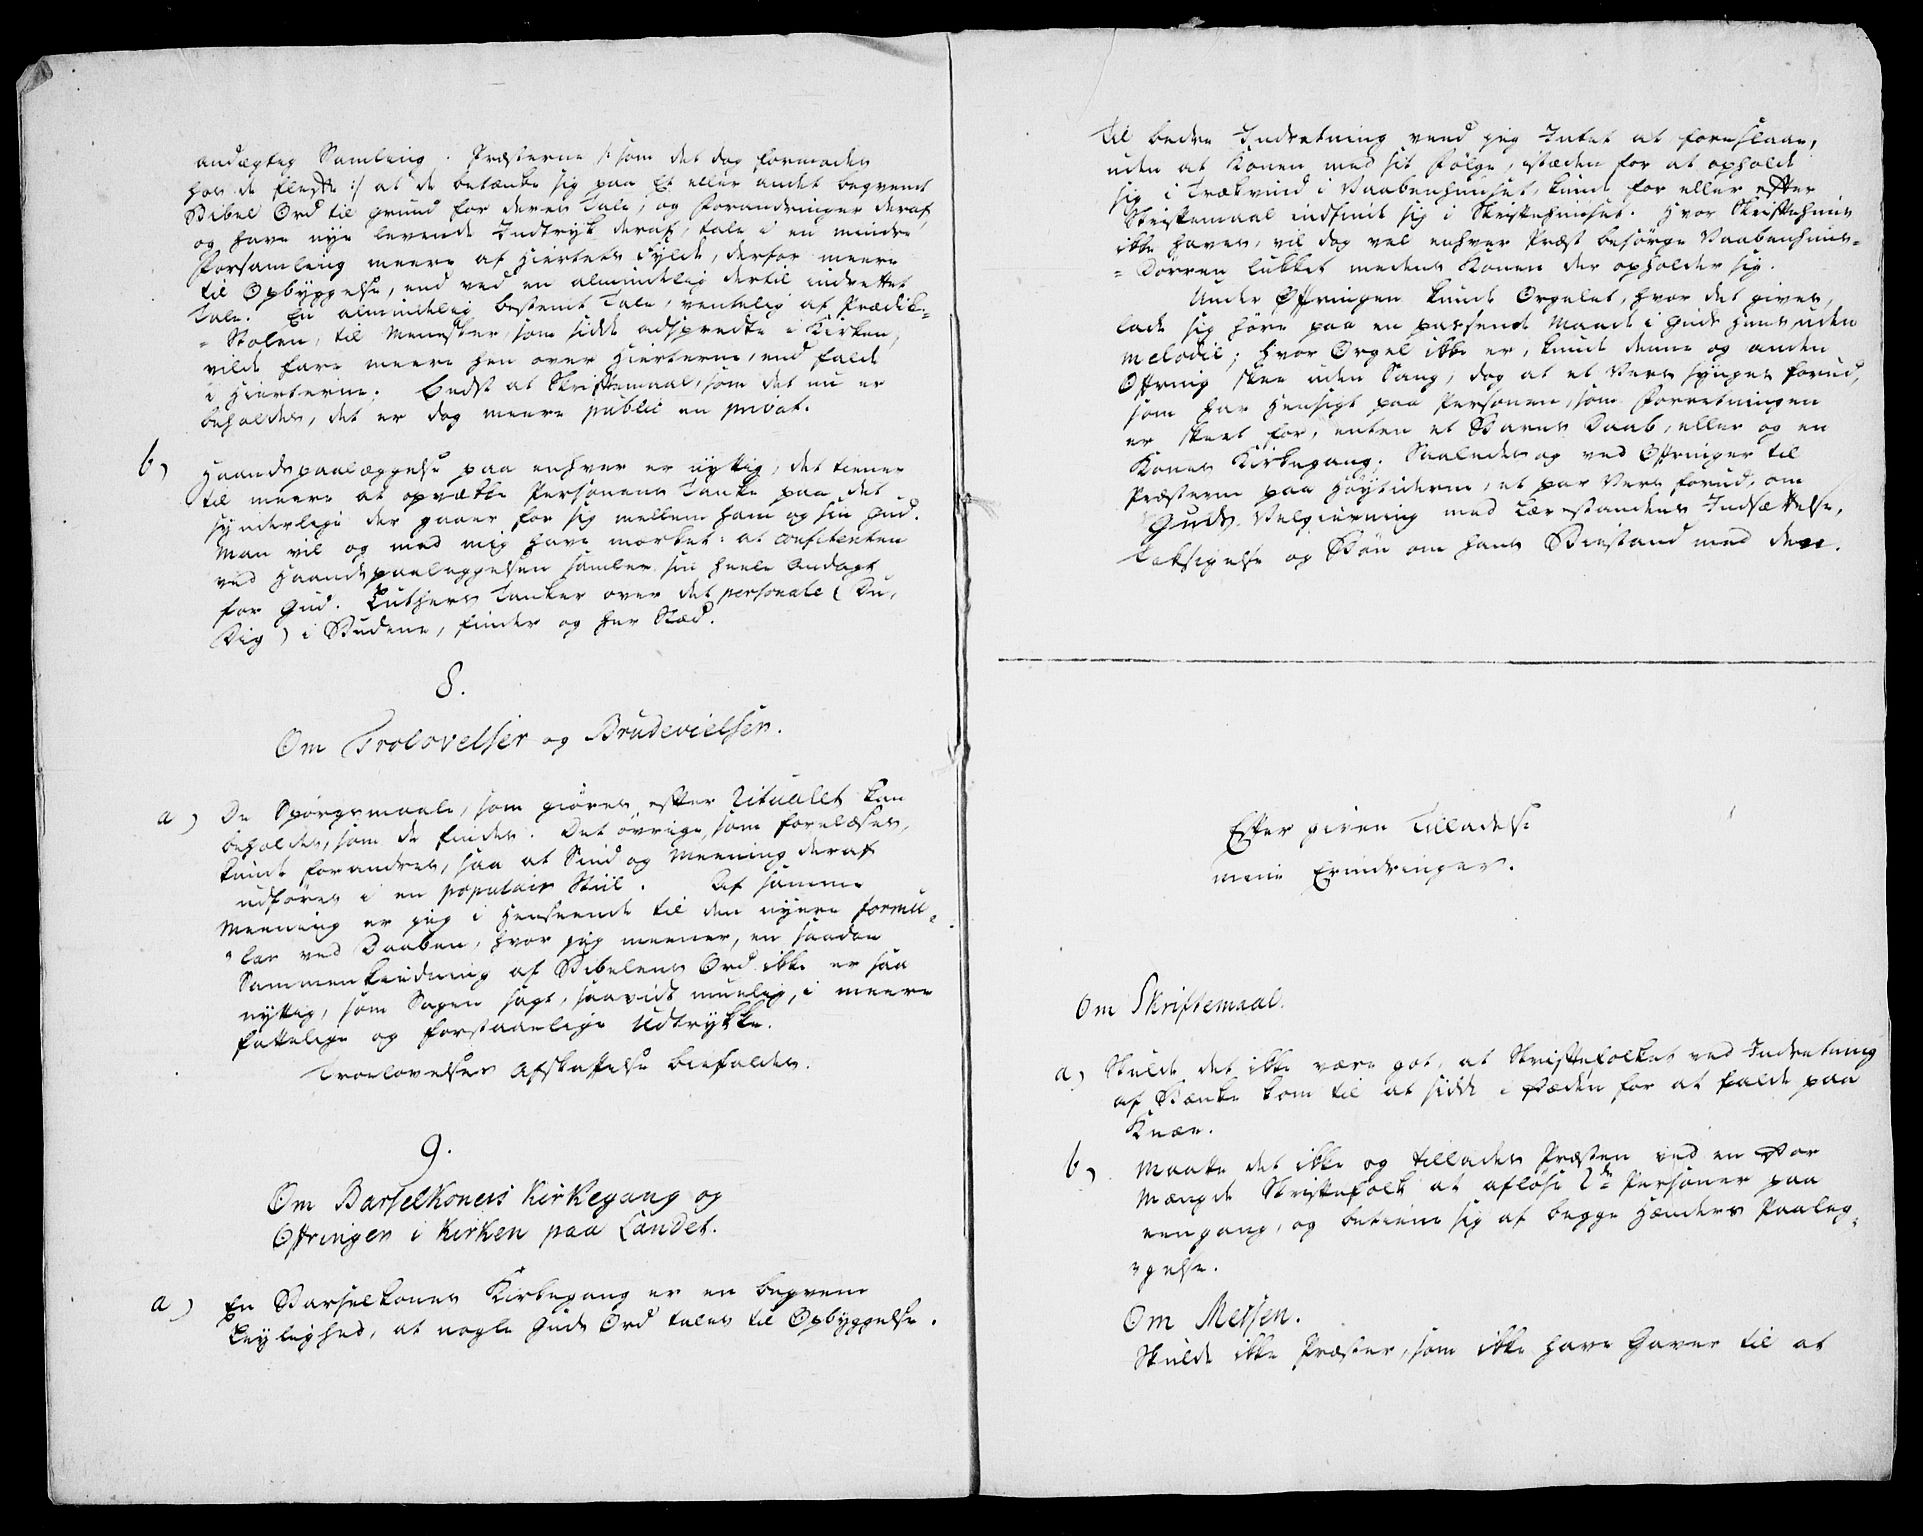 andægtig Samling. Præsterne /: som det dog formodes
hos de fleeste :/ at de betænke sig paa Et eller andet beqvemt
Bibel Ord til grund for deres Tale, og Forandringer deraf,
og have nye levende Indtryk deraf, tale i en mindre
Forsamling meere af Hiertets Fylde, derfor meere
til Opbyggelse, end ved en almindelig dertil indrettet
Tale. En almindelig bestemt Tale, ventelig af Prædike-
-Stolen, til Mennesker, som sidde adspredte i Kirken,
vilde fare meere hen over Hierterne, end falde
i Hierterne. Bedst at Skriftemaal, som det nu er
beholdes, det er dog meere public en privat.
b) Haands paalæggelse paa enhver er nyttig, det tiener
til meere at opvække Personens Tanke paa det
synderlige der gaaer for sig mellem ham og sin Gud.
Man vil og med mig have mærket: at confitenten
ved Haandspaalæggelsen samler sin heele Andagt
for Gud. Luthers Tanker over det personale (Du,
Dig) i Budene, finder og her Stæd.
8.
Om Trolovelser og Brudevielser.
a) De Spørgsmaale, som giøres efter Ritualet kan
beholdes, som de findes. Det øvrige, som forelæses,
kunde forandres, saa at Sind og Meening deraf
udføres i en populair Stiil. Af samme
Meening er jeg i Henseende til den nyere formu-
-lar ved Daaben, hvor jeg meener, en saadan
Sammenkiædning af Bibelens Ord ikke er saa
nyttig, som Sagen sagt, saavidt muelig, i meere
fattelige og forstaaelige Udtrykke.
Troelovelsers Afskaffelse biefaldes.
9.
Om Barselkoners Kirkegang og
Offringer i Kirken paa Landet.
a) En Barselkones Kirkegang er en beqvem
Leylighed, at nogle Guds Ord tales til Opbyggelse.
Til bedre Indretning veed jeg Intet at foreslaae,
uden at Konen med sit Følge, istæden for at opholde
sig i Trækvind i Vaabenhuuset, kunde før eller efter
Skriftemaal indfinde sig i Skriftehuuset. Hvor Skriftehuus
ikke haves, vil dog vel enhver Præst besørge Vaabenhuus-
-Dørren lukket medens Konen der opholder sig.
Under Offringen kunde Orgelet, hvor det gives,
lade sig høre paa en passende Maade i Guds Huus uden
Melodie; hvor Orgel ikke er, kunde denne og anden
Offring skee uden Sang, dog at et Vers synges forud,
som har Hensigt paa Personen, som Forretningen
er skeet for, enten et Barns Daab, eller og en
Kones Kirkegang. Saaledes og ved Offringer til
Præsterne paa Høytiderne, et par Vers forud, om
Guds Velgierning med Lærestandens Indsættelse,
Taksigelse og Bøn om hans Biestand med dem.
Efter given Tilladelse
mine Erindringer.
Om Skriftemaal.
a) Skulde det ikke være got, at Skriftefolket ved Indretning
af Bænke kom til at sidde i stæden for at falde paa
Knæe.
b) Maatte det ikke og tillades Præsten ved en stor
Mængde Skriftefolk at afløse 2de Personer paa
eengang, og betiene sig af begge Hænders Paaleg-
-gelse.
Om Messen.
Skulde ikke Præster, som ikke have Gaver til at